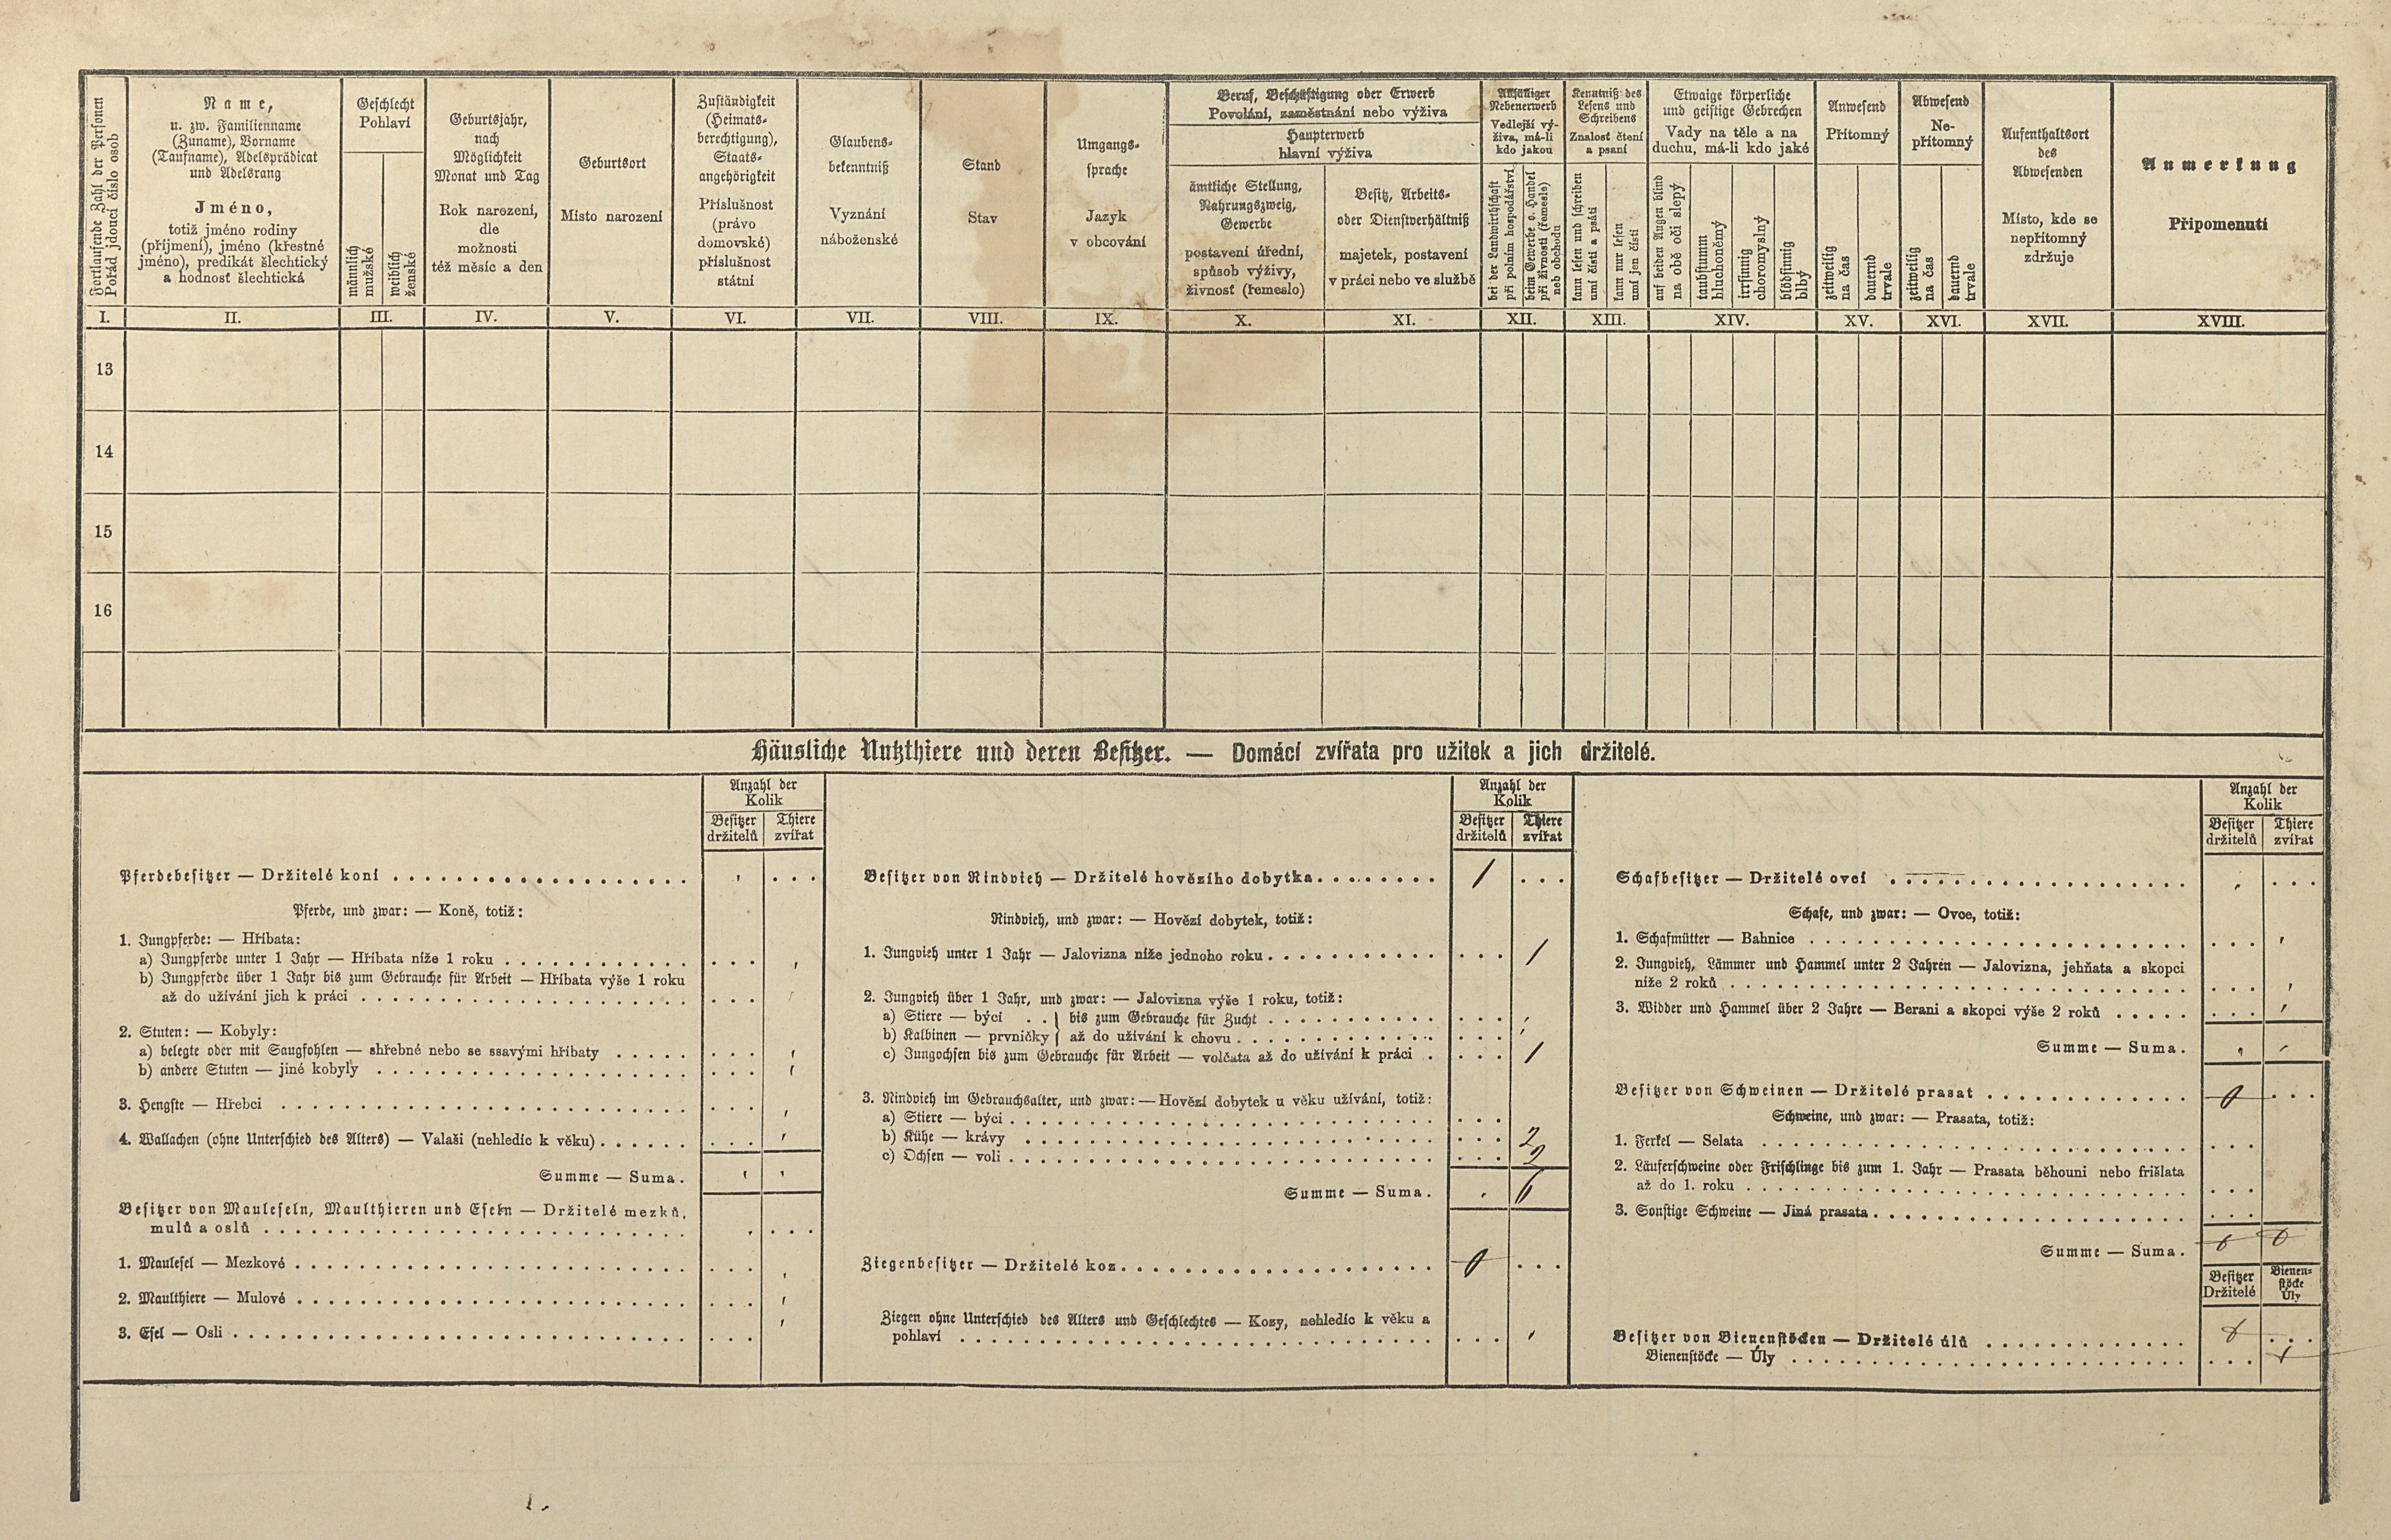 Fortlaufende Zahl der Personen
Pořád jdoucí číslo osob
Name,
u. zw. Familienname
(Zuname), Vorname
(Taufname), Adelsprädicat
und Adelsrang
Jméno,
totiž jméno rodiny
(příjmení), jméno (křestné
jméno), predikát šlechtický
a hodnosť šlechtická
Geschlecht
Pohlaví
männlich
mužské
weiblich
ženské
Geburtsjahr,
nach
Möglichkeit
Monat und Tag
Rok narození,
dle
možnosti
též měsíc a den
Geburtsort
Místo narození
Zuständigkeit
(Heimats-
berechtigung),
Staats-
angehörigkeit
Příslušnost
(právo
domovské)
příslušnost
státní
Glaubens-
bekenntniß
Vyznání
náboženské
Stand
Stav
Umgangs-
sprache
Jazyk
v obcování
Beruf, Beschäftigung oder Erwerb
Povolání, zaměstnání nebo výživa
Haupterwerb
hlavní výživa
ämtliche Stellung,
Nahrungszweig,
Gewerbe
postavení úřední,
spůsob výživy,
živnosť (řemeslo)
Besitz, Arbeits-
oder Dienstverhältniß
majetek, postavení
v práci nebo ve službě
Allfälliger
Nebenerwerb
Vedlejší vý-
živa, má-li
kdo jakou
bei der Landwirthschaft
při polním hospodářství
beim Gewerbe o. Handel
při živnosti (řemesle)
neb obchodu
Kenntniß des
Lesens und
Schreibens
Znalosť čtení
a psaní
kann lesen und schreiben
umí čísti a psáti
kann nur lesen
umí jen čísti
Etwaige körperliche
und geistige Gebrechen
Vady na těle a na
duchu, má-li kdo jaké
auf beiden Augen blind
na obě oči slepý
taubstumm
hluchoněmý
irrsinnig
choromyslný
blödsinnig
blbý
Anwesend
Přítomný
zeitweilig
na čas
dauernd
trvale
Abwesend
Ne-
přítomný
zeitweilig
na čas
dauernd
trvale
Aufenthaltsort
des
Abwesenden
Místo, kde se
nepřítomný
zdržuje
Anmerkung
Připomenutí
I. II. III. IV. V. VI. VII. VIII. IX. X. XI. XII. XIII. XIV. XV. XVI. XVII. XVIII.
13
14
15
16
Häusliche Nutzthiere und deren Besitzer. — Domácí zvířata pro užitek a jich držitelé.
Anzahl der
Kolik
Besitzer
držitelů
Thiere
zvířat
Pferdebesitzer — Držitelé koní
Pferde, und zwar: — Koně, totiž:
1. Jungpferde: — Hříbata:
a) Jungpferde unter 1 Jahr — Hříbata níže 1 roku
b) Jungpferde über 1 Jahr bis zum Gebrauche für Arbeit — Hříbata výše 1 roku
až do užívání jich k práci
2. Stuten: — Kobyly:
a) belegte oder mit Saugfohlen — shřebné nebo se ssavými hříbaty
b) andere Stuten — jiné kobyly
3. Hengste — Hřebci
4. Wallachen (ohne Unterschied des Alters) — Valaši (nehledíc k věku)
Summe — Suma.
Besitzer von Mauleseln, Maulthieren und Eseln — Držitelé mezků,
mulů a oslů
1. Maulesel — Mezkové
2. Maulthiere — Mulové
3. Esel — Osli
Anzahl der
Kolik
Besitzer
držitelů
Thiere
zvířat
Besitzer von Rindvieh — Držitelé hovězího dobytka 1
Rindvieh, und zwar: — Hovězí dobytek, totiž:
1. Jungvieh unter 1 Jahr — Jalovizna níže jednoho roku 1
2. Jungvieh über 1 Jahr, und zwar: — Jalovizna výše 1 roku, totiž:
a) Stiere — býci . . } bis zum Gebrauche für Zucht
b) Kalbinen — prvničky } až do užívání k chovu
c) Jungochsen bis zum Gebrauche für Arbeit — volčata až do užívání k práci 1
3. Rindvieh im Gebrauchsalter, und zwar: — Hovězí dobytek u věku užívání, totiž:
a) Stiere — býci
b) Kühe — krávy 2
c) Ochsen — voli 2
Summe — Suma. 6
Ziegenbesitzer — Držitelé koz 0
Ziegen ohne Unterschied des Alters und Geschlechtes — Kozy, nehledíc k věku a
pohlaví
Anzahl der
Kolik
Besitzer
držitelů
Thiere
zvířat
Schafbesitzer — Držitelé ovcí
Schafe, und zwar: — Ovce, totiž:
1. Schafmütter — Bahnice
2. Jungvieh, Lämmer und Hammel unter 2 Jahren — Jalovizna, jehňata a skopci
níže 2 roků
3. Widder und Hammel über 2 Jahre — Berani a skopci výše 2 roků
Summe — Suma.
Besitzer von Schweinen — Držitelé prasat 0
Schweine, und zwar: — Prasata, totiž:
1. Ferkel — Selata
2. Läuferschweine oder Frischlinge bis zum 1. Jahr — Prasata běhouni nebo frišlata
až do 1. roku
3. Sonstige Schweine — Jiná prasata
Summe — Suma. 0 0
Besitzer
Držitelé
Bienen-
stöcke
Úly
Besitzer von Bienenstöcken — Držitelé úlů
Bienenstöcke — Úly